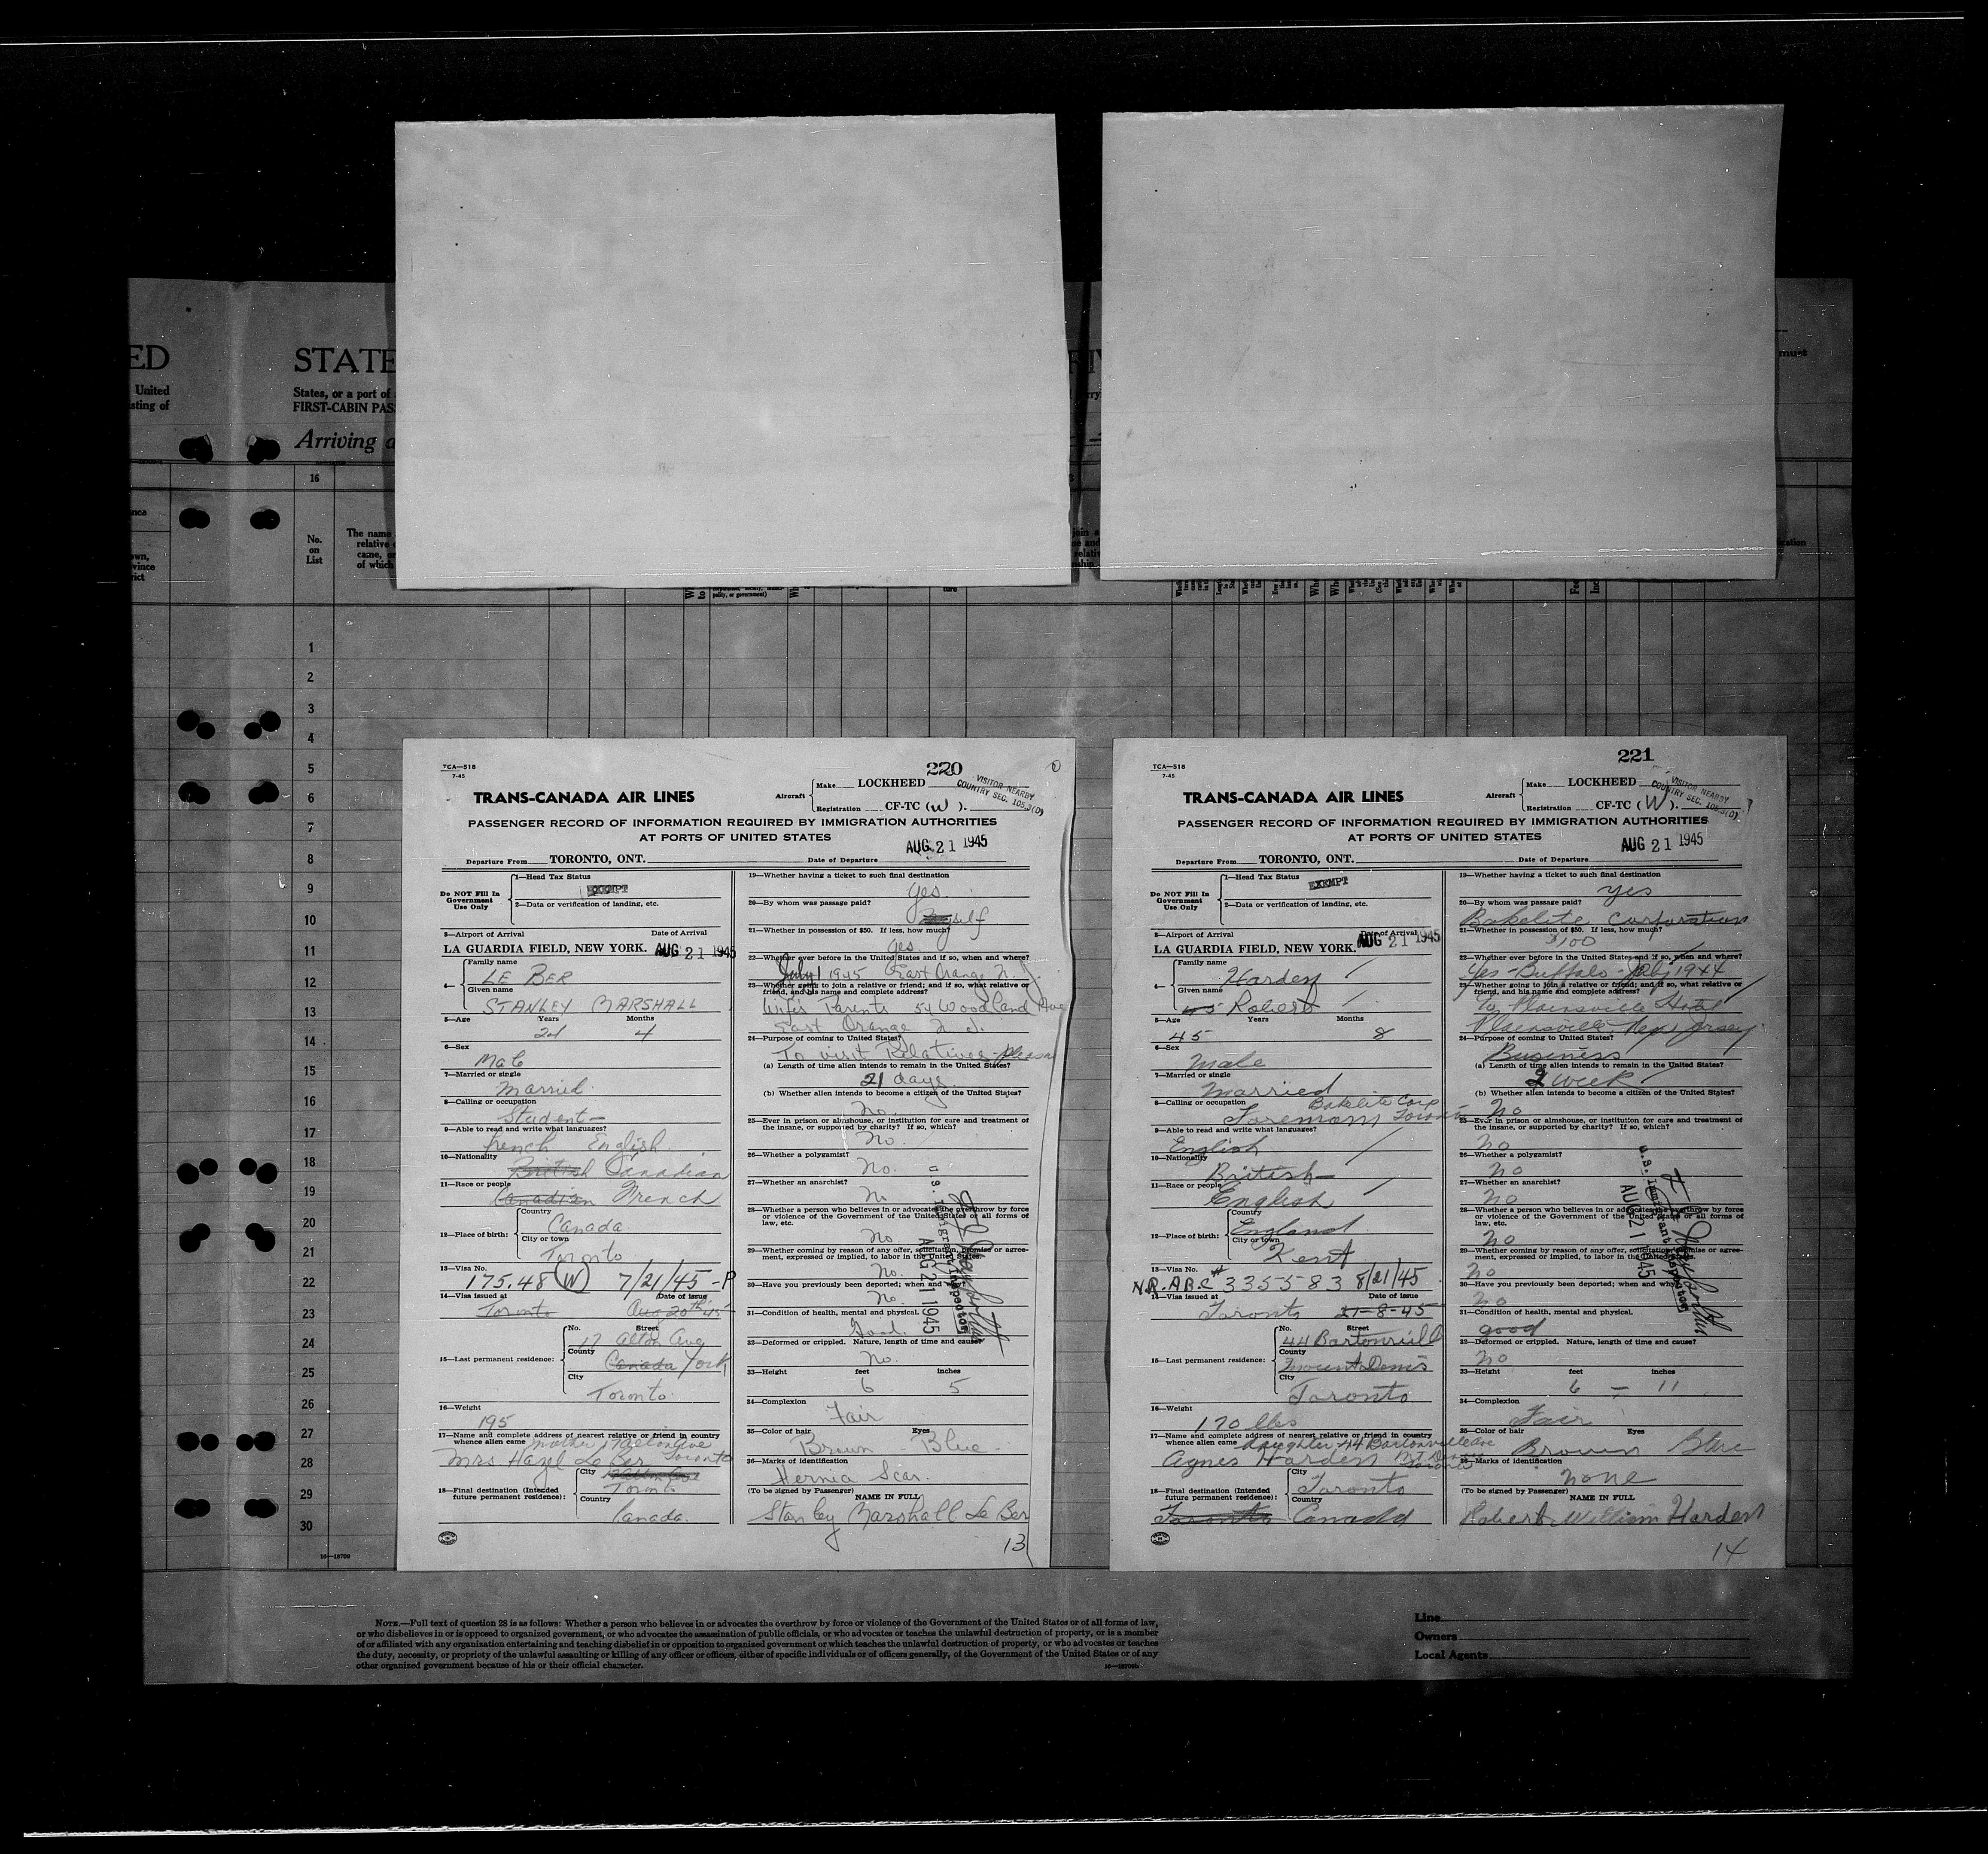 ED
United
isting of
STATE
States, or a port of
FIRST-CABIN PAS
Arriving a
must
16
No.
on
List
The name
relative
came, or
of which
1
2
3
4
5
6
7
8
9
10
11
12
13
14
15
16
17
18
19
20
21
22
23
24
25
26
27
28
29
30
16—18709
TCA—518
7-45
220
TRANS-CANADA AIR LINES
Aircraft
Make LOCKHEED
Registration CF-TC (W).
VISITOR NEARBY
COUNTRY SEC. 105.3(D)
PASSENGER RECORD OF INFORMATION REQUIRED BY IMMIGRATION AUTHORITIES
AT PORTS OF UNITED STATES
AUG 21 1945
Departure From TORONTO, ONT. Date of Departure
Do NOT Fill In
Government
Use Only
1—Head Tax Status
EXEMPT
2—Data or verification of landing, etc.
3—Airport of Arrival Date of Arrival
LA GUARDIA FIELD, NEW YORK. AUG 21 1945
4—
Family name
LE BER
Given name
STANLEY MARSHALL
5—Age Years Months
24 4
6—Sex
Male
7—Married or single
Married.
8—Calling or occupation
Student—
9—Able to read and write what languages?
French English
10—Nationality
British Canadian
11—Race or people
Canadian French
12—Place of birth:
Country
Canada
City or town
Toronto
13—Visa No.
175.48 (W) 7/21/45-P
14—Visa issued at Date of issue
Toronto Aug 20th 45
15—Last permanent residence:
No. Street
17 Alton Ave
County
Canada York
City
Toronto
16—Weight
195
17—Name and complete address of nearest relative or friend in country
whence alien came mother 17 Alton Ave
Mrs Hazel Le Ber Toronto
18—Final destination (Intended
future permanent residence):
City
Toronto
Country
Canada.
19—Whether having a ticket to such final destination
Yes.
20—By whom was passage paid?
self
21—Whether in possession of $50. If less, how much?
Yes.
22—Whether ever before in the United States and if so, when and where?
July 1945 East Orange N. J.
23—Whether going to join a relative or friend; and if so, what relative or
friend, and his name and complete address?
Wifes Parents 54 Woodland Ave
East Orange N. J.
24—Purpose of coming to United States?
To visit Relatives - pleasure
(a) Length of time alien intends to remain in the United States?
21 days.
(b) Whether alien intends to become a citizen of the United States?
No.
25—Ever in prison or almshouse, or institution for care and treatment of
the insane, or supported by charity? If so, which?
No.
26—Whether a polygamist?
No.
27—Whether an anarchist?
No
28—Whether a person who believes in or advocates the overthrow by force
or violence of the Government of the United States or all forms of
law, etc.
No.
29—Whether coming by reason of any offer, solicitation, promise or agree-
ment, expressed or implied, to labor in the United States.
No.
30—Have you previously been deported; when and why?
No.
31—Condition of health, mental and physical.
Good.
32—Deformed or crippled. Nature, length of time and cause?
No.
33—Height feet inches
6 5
34—Complexion
Fair
35—Color of hair Eyes
Brown - Blue.
36—Marks of identification
Hernia Scar.
(To be signed by Passenger)
NAME IN FULL
Stanley Marshall Le Ber
13
U.S. Immigrant Inspector
AUG 21 1945
TCA—518
7-45
221
TRANS-CANADA AIR LINES
Aircraft
Make LOCKHEED
Registration CF-TC (W).
VISITOR NEARBY
COUNTRY SEC. 105.3(D)
PASSENGER RECORD OF INFORMATION REQUIRED BY IMMIGRATION AUTHORITIES
AT PORTS OF UNITED STATES
AUG 21 1945
Departure From TORONTO, ONT. Date of Departure
Do NOT Fill In
Government
Use Only
1—Head Tax Status
EXEMPT
2—Data or verification of landing, etc.
3—Airport of Arrival Date of Arrival
LA GUARDIA FIELD, NEW YORK. AUG 21 1945
4—
Family name
Harden
Given name
45 Robert
5—Age Years Months
45 8
6—Sex
Male
7—Married or single
Married
8—Calling or occupation Bakelite Corp
Foreman Toronto
9—Able to read and write what languages?
English
10—Nationality
British
11—Race or people
English
12—Place of birth:
Country
England
City or town
Kent
13—Visa No.
N.R.A.B.C # 335583 8/21/45
14—Visa issued at Date of issue
Toronto 21-8-45
15—Last permanent residence:
No. Street
44 Bartonvill
County
Mount Denis
City
Toronto
16—Weight
170 lbs
17—Name and complete address of nearest relative or friend in country
whence alien came daughter 44 Bartonville Ave
Agnes Harden Mt Denis
Toronto
18—Final destination (Intended
future permanent residence):
City
Toronto
Country
Toronto Canada
19—Whether having a ticket to such final destination
yes
20—By whom was passage paid?
Bakelite Corporation
21—Whether in possession of $50. If less, how much?
$100
22—Whether ever before in the United States and if so, when and where?
Yes - Buffalo - July 1944
23—Whether going to join a relative or friend; and if so, what relative or
friend, and his name and complete address?
To Plainsville Hotel
Plainsville New Jersey.
24—Purpose of coming to United States?
Business
(a) Length of time alien intends to remain in the United States?
2 week
(b) Whether alien intends to become a citizen of the United States?
no
25—Ever in prison or almshouse, or institution for care and treatment of
the insane, or supported by charity? If so, which?
no
26—Whether a polygamist?
no
27—Whether an anarchist?
no
28—Whether a person who believes in or advocates the overthrow by force
or violence of the Government of the United States or all forms of
law, etc.
no
29—Whether coming by reason of any offer, solicitation, promise or agree-
ment, expressed or implied, to labor in the United States.
no
30—Have you previously been deported; when and why?
no
31—Condition of health, mental and physical.
good
32—Deformed or crippled. Nature, length of time and cause?
no
33—Height feet inches
6 — 11
34—Complexion
Fair
35—Color of hair Eyes
Brown Blue
36—Marks of identification
none
(To be signed by Passenger)
NAME IN FULL
Robert William Harden
14
U.S. Immigrant Inspector
AUG 21 1945
NOTE.—Full text of question 28 is as follows: Whether a person who believes in or advocates the overthrow by force or violence of the Government of the United States or of all forms of law,
or who disbelieves in or is opposed to organized government, or who advocates the assassination of public officials, or who advocates or teaches the unlawful destruction of property, or is a member
of or affiliated with any organization entertaining and teaching disbelief in or opposition to organized government or which teaches the unlawful destruction of property, or who advocates or teaches
the duty, necessity, or propriety of the unlawful assaulting or killing of any officer or officers, either of specific individuals or of officers generally, of the Government of the United States or of any
other organized government because of his or their official character.
16—18709b
Line
Owners
Local Agents